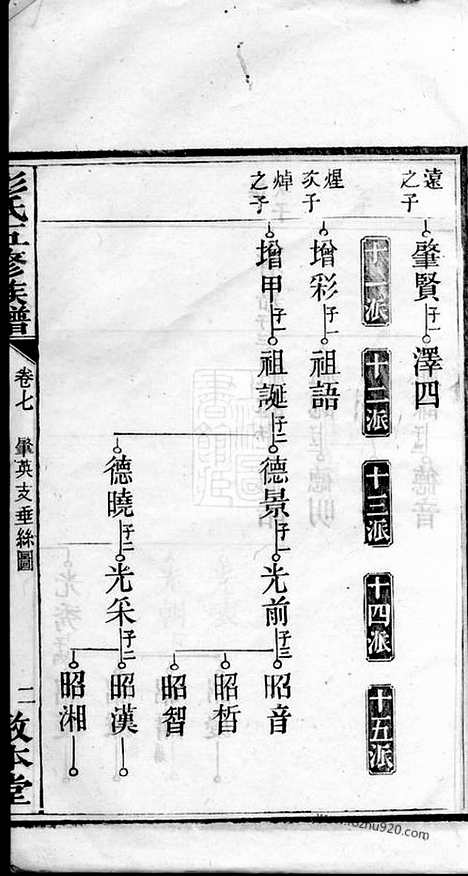 遠之子
肇賢 子一
澤四
十一派
十二派
十三派
十四派
十五派
煋次子
增彩 子一
祖語
焯之子
增甲 子一
祖誕 子二
德景 子一
光前 子三
昭音
昭哲
昭智
德曉 子二
光采 子二
昭漢
昭湘
彭氏五修族譜
卷七
支垂絲圖
二
敦本堂
www.kozhu920.com